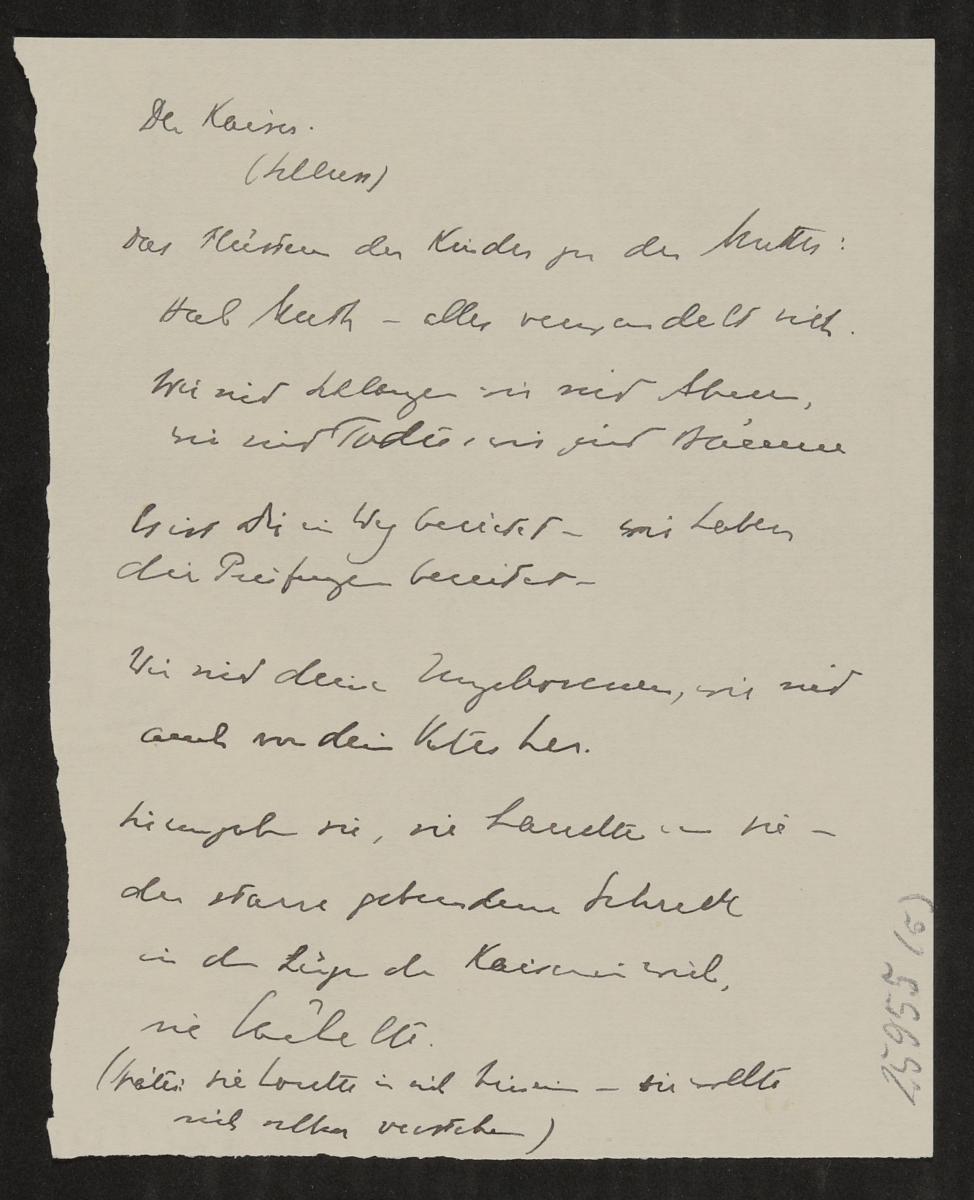 Der Kaiser.
(Schluss)
Das Flüstern der Kinder zu der Mutter:
Hab Muth – alles verwandelt sich.
Wir sind Schlangen wir sind
wir sind Todte, wir sind
Es ist Dir ein Weg bereitet – wir haben
dir Prüfungen bereitet –
Wir sind deine Ungeborenen, wir sind
auch von dein Vater her.
Sie umgeben sie, sie hauchte in sie –
der starre gebundene Schreck
in den Zügen der Kaiserin wich,
sie lächelte.
(später: sie horchte in sich hinein – sie wollte
sich selber verstehen)
25955 (6)